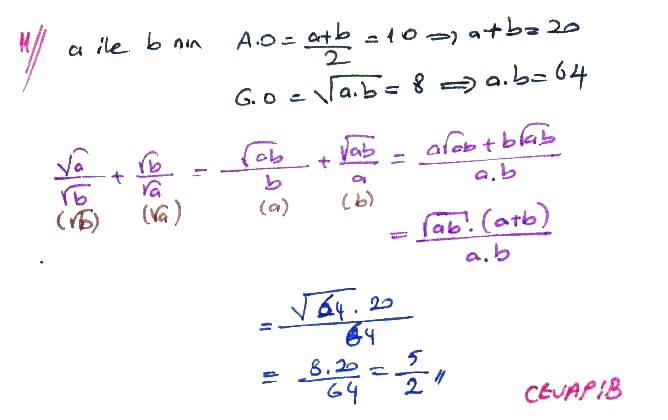 11// a ile b nin A.O = a+b/2 = 10 ⟹ a+b = 20
G.O = √a.b = 8 ⟹ a.b = 64
√a/√b + √b/√a = √ab/b + √ab/a = a√ab + b√ab/a.b
(√b) (√a) (a) (b)
= √ab . (a+b)/a.b
= √64 . 20/64
= 8.20/64 = 5/2 //
CEVAP:B